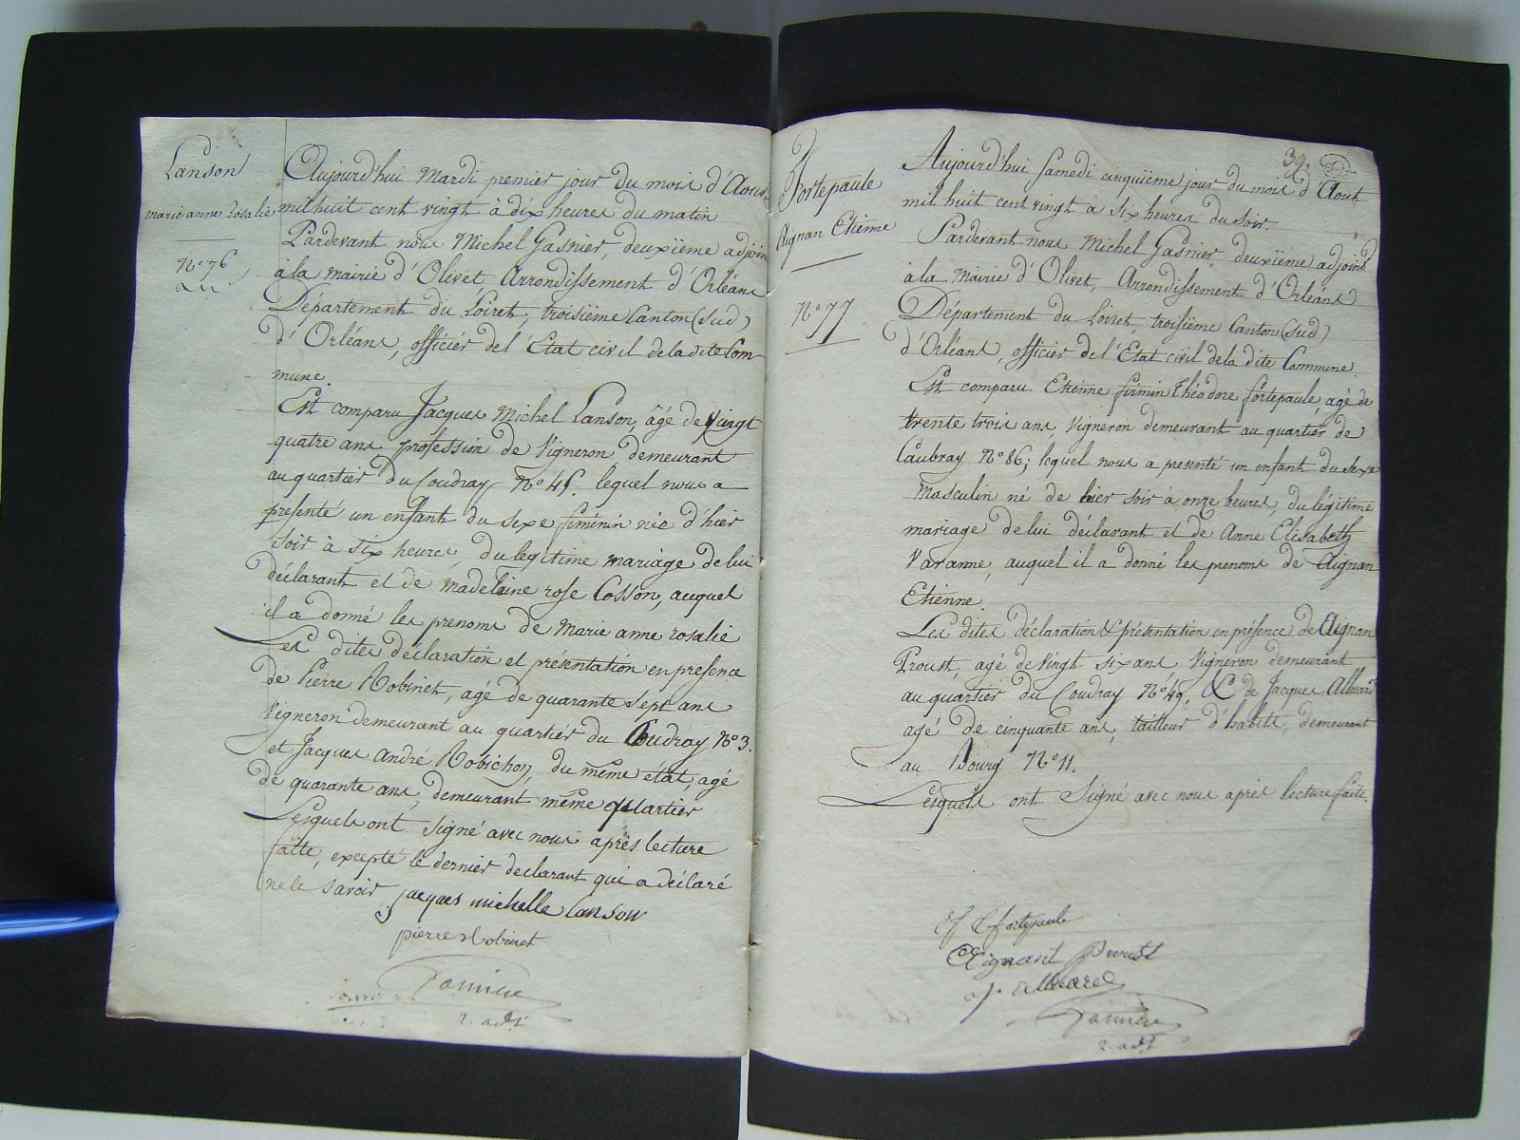 Lanson
marie anne Rosalie
N° 76
Aujourd'hui Mardi premier jour du mois d'Aout
mil huit cent vingt à dix heures du matin
Pardevant nous Michel Gasnier, deuxïème adjoint
à la mairie d'Olivet Arrondissement d'Orléans
Département du Loiret, troisïème Canton (Sud)
d'Orléans, officier de l'Etat civil de la dite Com-
mune.
Est comparu Jacques Michel Lanson, âgé de vingt
quatre ans profession de Vigneron demeurant
au quartier du Coudray N° 45. lequel nous a
presenté un enfant du sexe feminin née d'hier
soir à six heures, du legitime mariage de lui
déclarant et de Madelaine rose Cosson, auquel
il a donné les prenoms de Marie anne rosalie
Les dites déclaration et présentation en presence
de Pierre Robinet, agé de quarante sept ans
Vigneron demeurant au quartier du Coudray N° 3.
et Jacques André Robichon, du même état, agé
de quarante ans, demeurant même quartier
Lesquels ont signé avec nous après lecture
faite, excepté le dernier declarant qui a déclaré
ne le savoir jacques michelle Lanson
pierre Robinet
2. adjt
39.
Fortepaule
Aignan Etienne
N° 77
Aujourd'hui Samedi cinquïème jour du mois d'Aout
mil huit cent vingt à six heures du soir.
Pardevant nous Michel Gasnier deuxïème adjoint
à la Mairie d'Olivet, Arrondissement d'Orléans
Département du Loiret, troisïème Canton (Sud)
d'Orléans, officier de l'Etat civil de la dite Commune.
Est comparu Etienne firmin théodore fortepaule, agé de
trente trois ans, Vigneron demeurant au quartier de
Caubray N° 86; lequel nous a presenté un enfant du sexe
Masculin né de hier soir à onze heures, du légitime
mariage de lui déclarant et de Anne Elisabeth
Varanne, auquel il a donné les prenoms de Aignan
Etienne.
Les dites déclaration & présentation en présence de Aignan
Proust, agé de vingt six ans Vigneron demeurant
au quartier du Coudray N° 49, & de Jacques Allard
agé de cinquante ans, tailleur d'habits, demeurant
au Bourg N° 11.
Lesquels ont Signé avec nous après lecture faite.
fortepaule
Aignant Proust
2. adjt